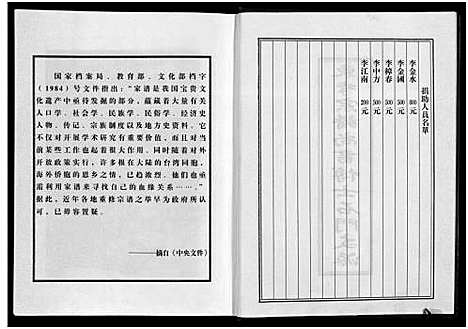 国家档案局、教育部、文化部档字
(1984)号文件指出：“家谱是我国宝贵文
化遗产中亟待发掘的部分，蕴藏着大量有关
人口学、社会学、民族学、民俗学、经济史
人物、传记、宗族制度以及地方史资料。它
不仅对开展学术研究有重要价值，而且对当
前某些工作也起着很大作用。同时随着对外
开放政策实行，许多根在大陆的台湾同胞，
海外侨胞的思乡之情，已趋浓烈。他们也重
温利用家谱来寻找自己的血缘关系……。”
据此，近年各地重修宗谱之举早为政府所认
可，已毋容置疑。
——摘自《中央文件》
捐助人员名單
李金水 800元
李金國 500元
李樟春 500元
李中方 500元
李江南 200元